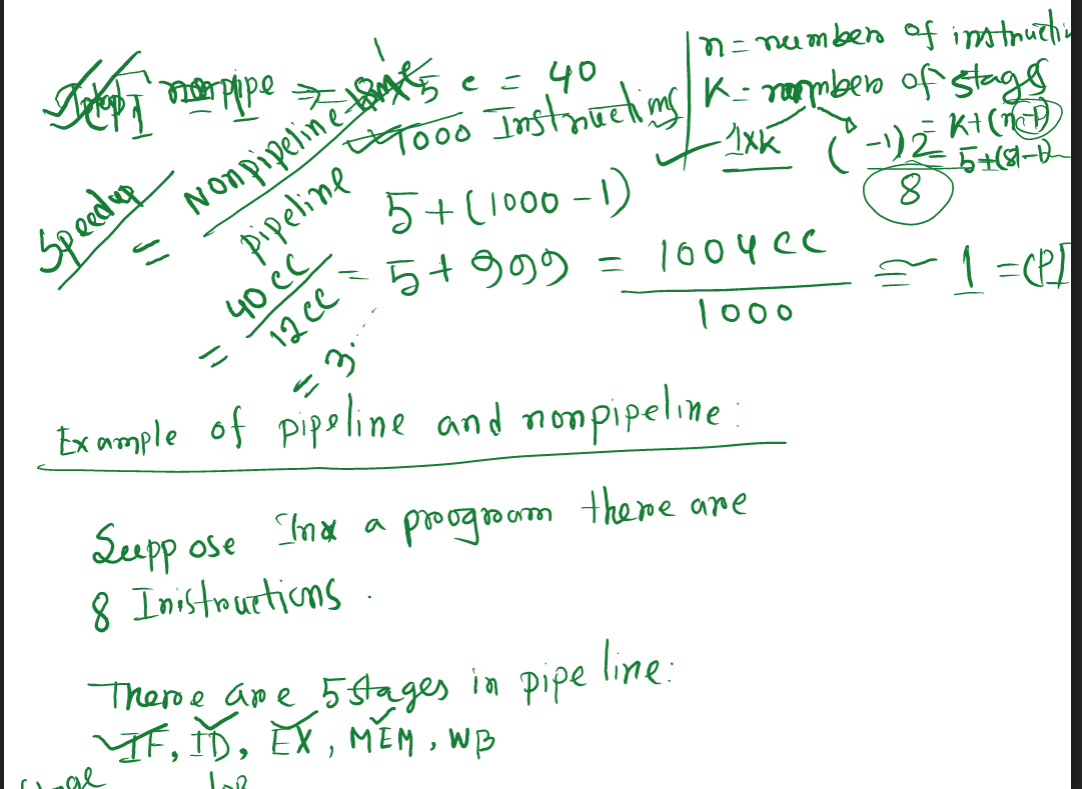 nonpipe => 8 × 5 c = 40
1000 Instructions
n = number of instructi
K = number of stages
1xK
= K+(n-1)
= 5+(8-1)
8
Speedup = Nonpipeline time
pipeline
= 40 CC
12 CC
= 3...
5+(1000-1)
= 5+999 = 1004 CC ≅ 1 = CPI
1000
Example of pipeline and nonpipeline:
Suppose In a program there are
8 Inistructions.
There are 5 stages in pipe line:
IF, ID, EX, MEM, WB